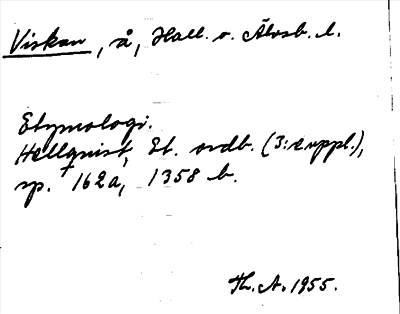 Viskan, å, Hall. o. Älvsb. l.
Etymologi.
Hellquist, Et. ordb. (3:e uppl.),
sp. † 162a, 1358 b.
Th. A. 1955.